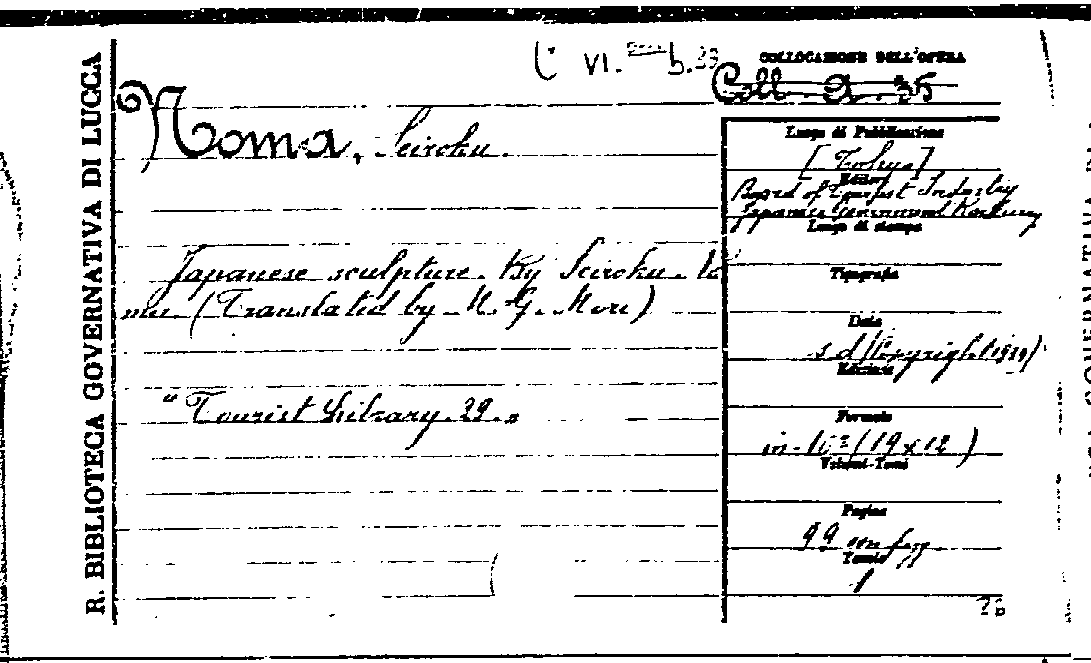 R. BIBLIOTECA GOVERNATIVA DI LUCCA
VI. b. 23
COLLOCAZIONE DELL'OPERA
Coll. a. 35
Noma, Seiroku.
Japanese sculpture. By Seiroku No
ma (Translated by M. G. Mori)
"Tourist Library. 29.„
Luogo di Pubblicazione
[Tokyo]
Editore
Board of Tourist Industry
Japanese Government Railway
Luogo di stampa
Tipografia
Data
s. d. (Copyright 1939)
Edizione
Formato
in-16° (19 x 12)
Volumi-Tomi
Pagine
99 con fig.
1